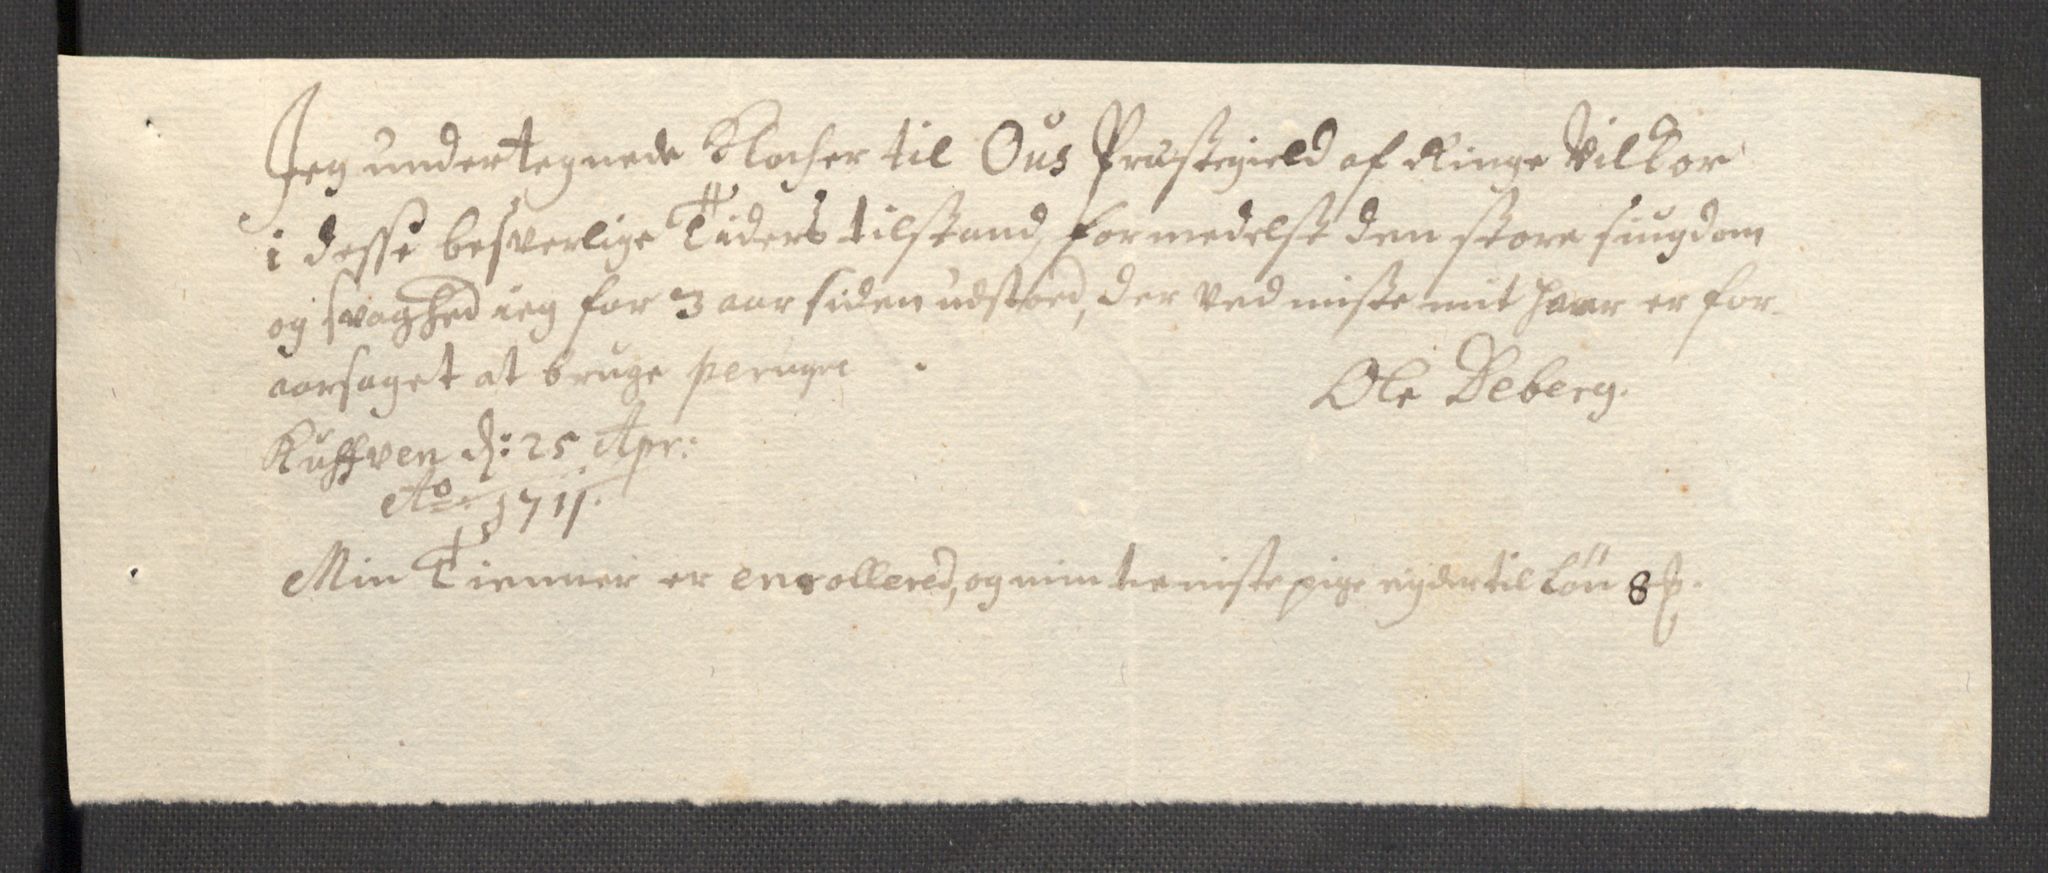 Jeg undertegnede Klocker til Ous Præstegield af Ringe Vilkor
i desse besverlige Tiders tilstand, formedelst den store siugdom
og svaghed ieg for 3 aar siden udstoed, der ved miste mit haar er for-
aarsaget at bruge peruqve
Ole Deberg.
d: 25 Apr:
Ao. 1711.
Min Tienner er enrollered, og min tieniste pige nyder til Løn 8